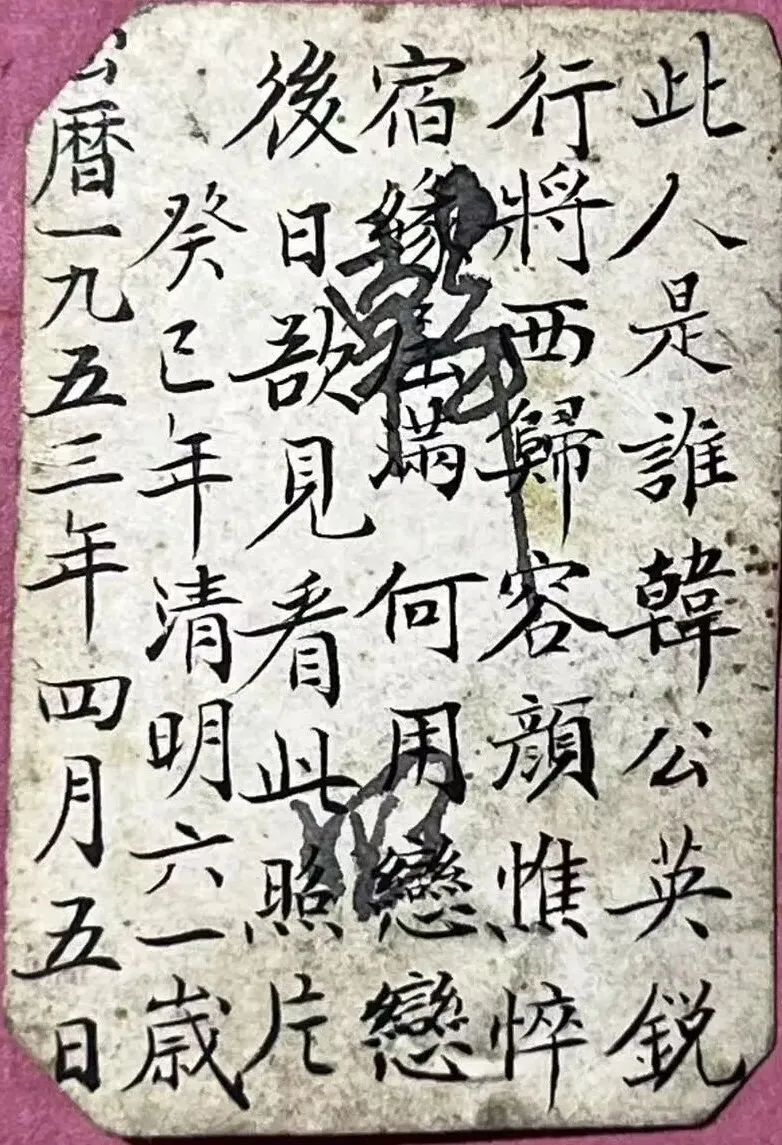 此人是誰韓公英鋭
行將西歸容顔憔悴
宿緣滿何用戀戀
後日欲見看此照片
癸已年清明六一歳
公曆一九五三年四月五日